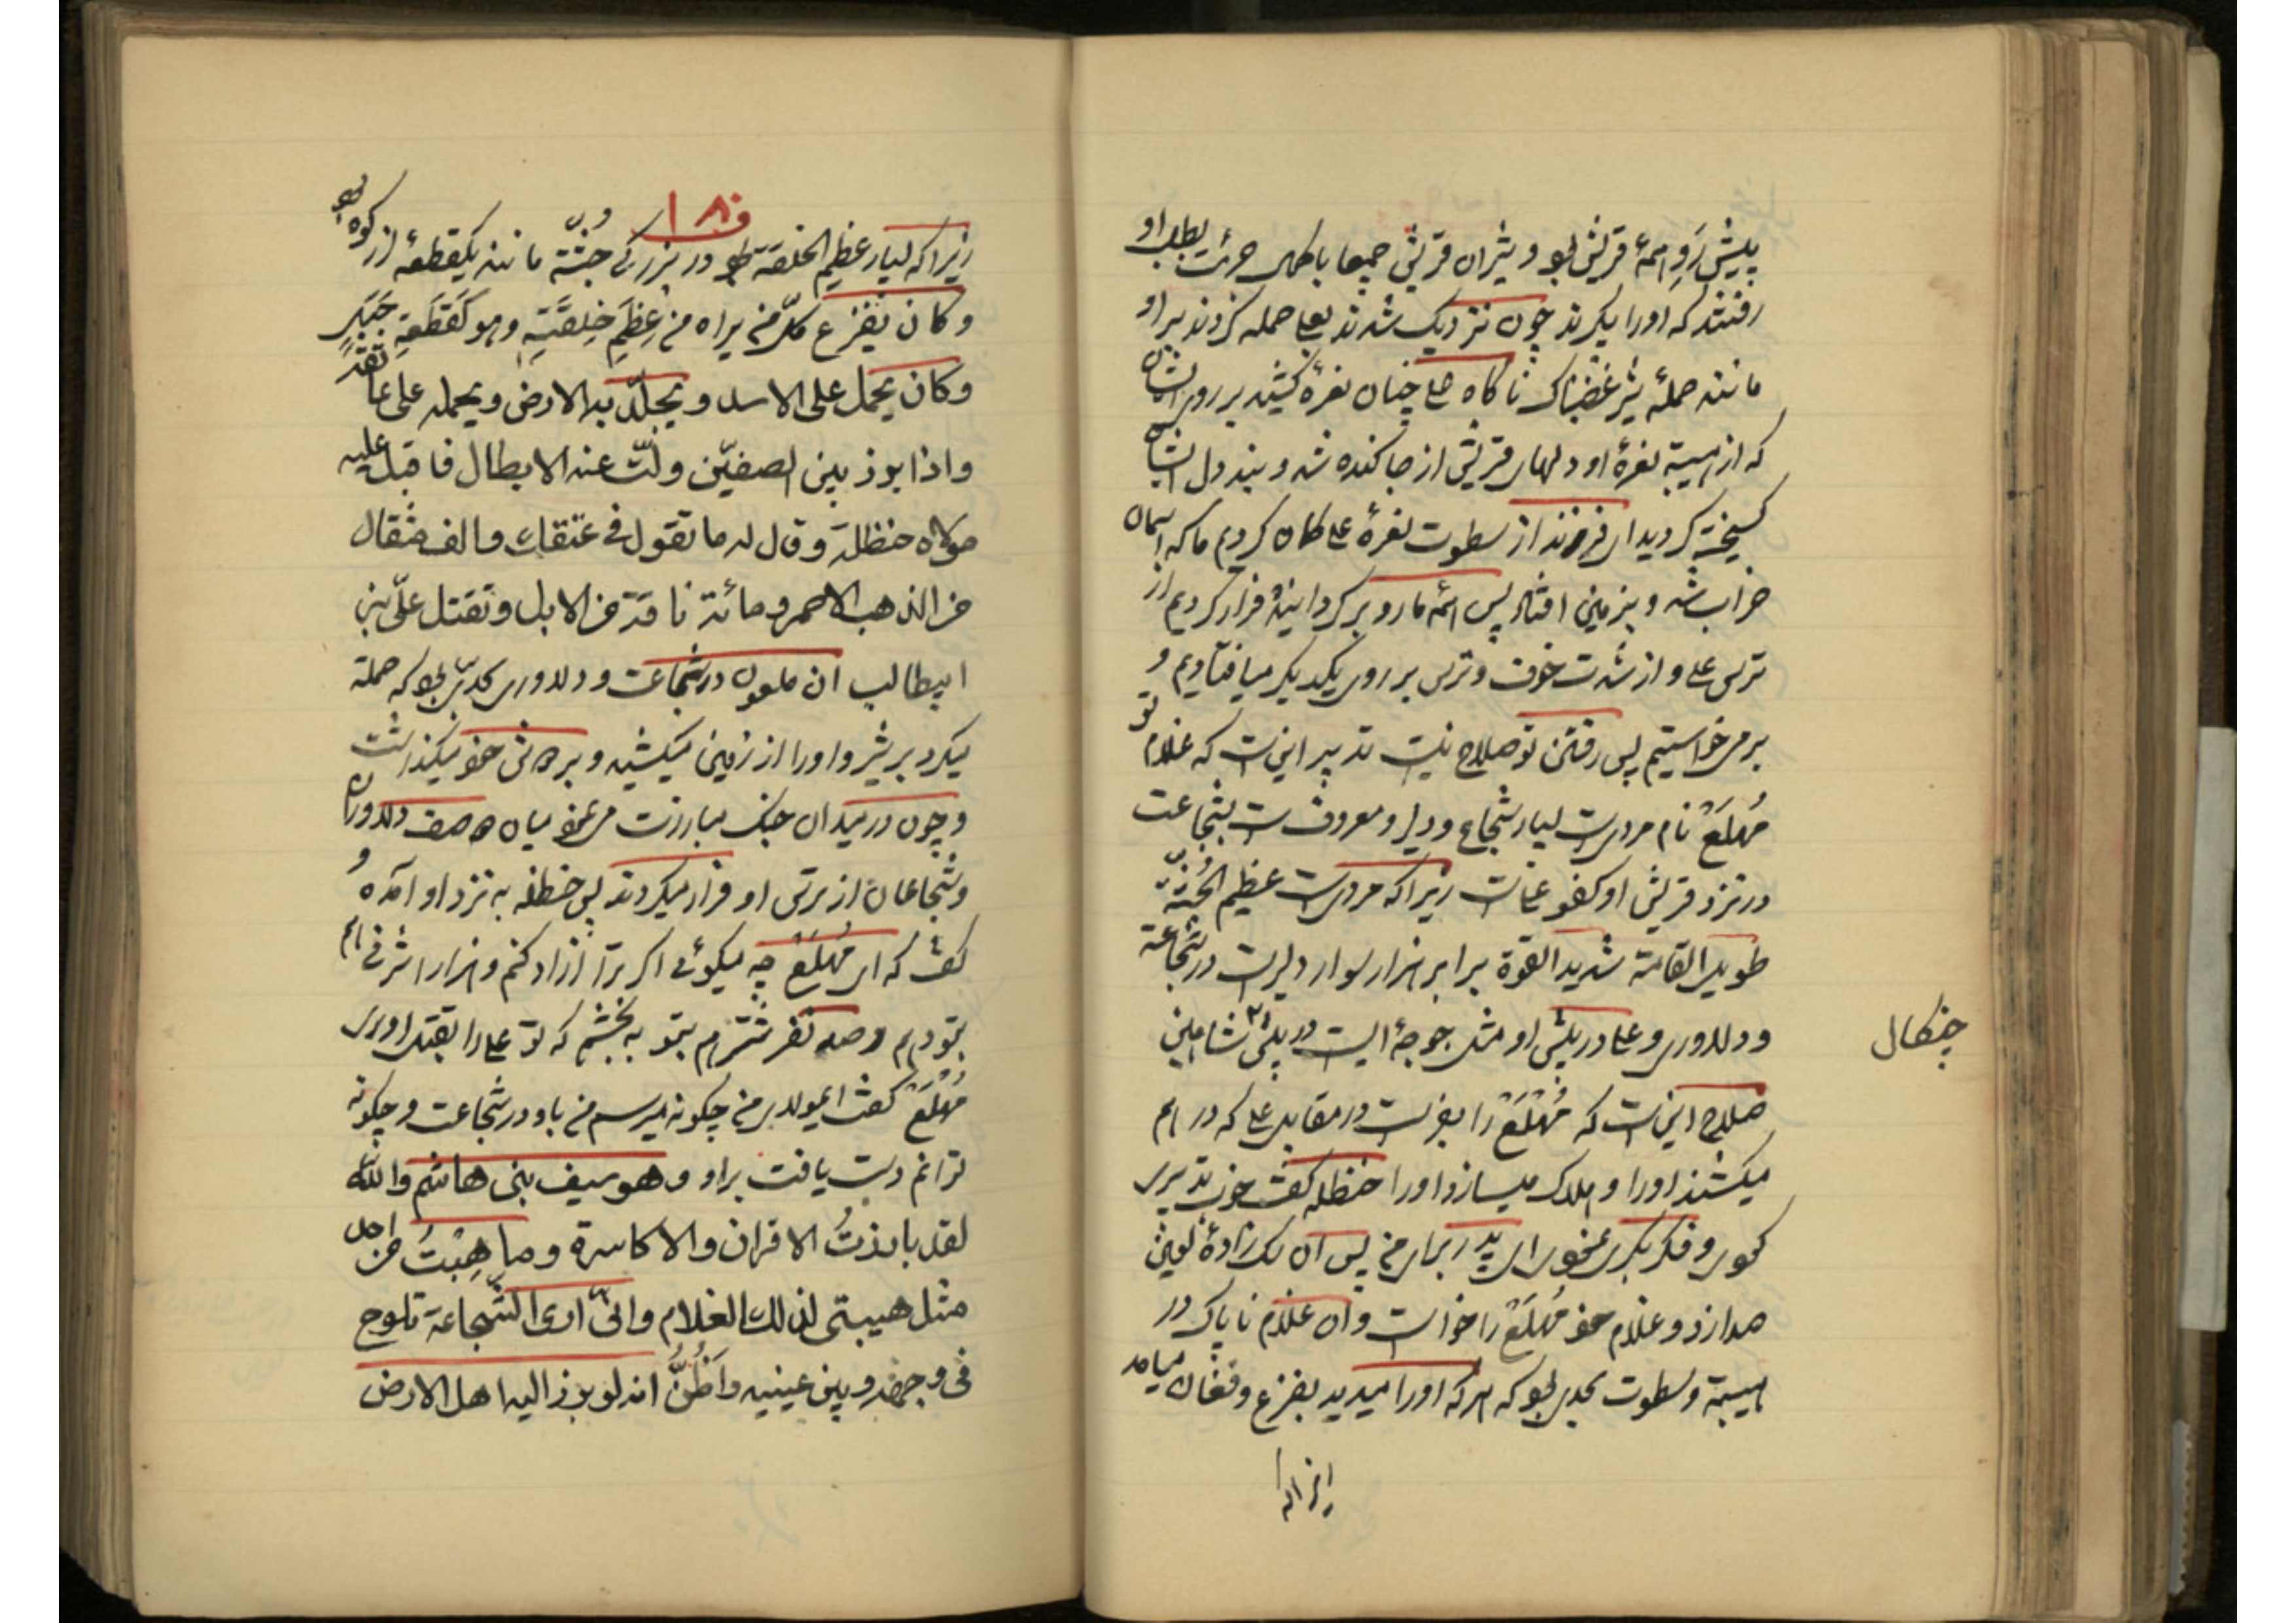 پیش رو همهٔ قریش بود و شیران قریش جمیعا با کمال جرئت بطلب او
رفتند که او را بگیرند چون نزدیک شدند بعلی حمله کردند بر او
مانند حملهٔ شیر غضبناک ناگاه علی چنان نعرهٔ کشید بر روی ایشان
که از هیبة نعرهٔ او دلهای قریش از جا کنده شد و بند دل ایشان
گسیخته گردید ای فرزند از سطوت نعرهٔ علی گمان کردیم ما که آسمان
خراب شد و بزمین افتاد پس همه ما رو برگردانیده فرار کردیم از
ترس علی و از شدت خوف و ترس بر روی یکدیگر میافتادیم و
بر می خواستیم پس رفتن تو صلاح نیست تدبیر اینست که غلام تو
مُهَلَّعْ نام مردیست بسیار شجاع و دلیر و معروفست بشجاعت
در نزد قریش او کفو علی است زیرا که مردیست عظیم الجُثّه
طویل القامة شدید القوة برابر هزار سوار دلیرست در شجاعة
و دلاوری و علی در پیش او مثل جوجهٔ ایست در پیش شاهین
چنکال
صلاح اینست که مُهَلَّعْ را بفرست در مقابل علی که در دم
میکشد او را و هلاک میسازد او را حنظله گفت خوب تدبیری
کردی و فکر بکری نمودی ای پدر برای من پس آن سک زادهٔ لعین
صدا زد و غلام خود مُهَلَّعْ را خواست و آن غلام ناپاک در
هیبة و سطوت بحدی بود که هر که او را میدید بفزع و فغان میامد
زیرا که
۱۰۸
زیرا که بسیار عظیم الخلقة بود در بزرگی جُثّه مانند یکقطعهٔ از کوه بود
وکان یفزع کلّ من یراه من عِظَمِ خِلقَتِهِ وهو کَقَطْعَةِ جَبَلٍ
وکان یحمل علی الاسد و یجلّد به الارض و یحمله علی عاتقه
واذا بوز بین الصفیّن ولّت عنه الابطال فاقبل علیه
مولاه حنظلة وقال له ما تقول فی عتقك والف مثقال
من الذهب الاحمر ومائة ناقة من الابل وتقتل علیّ بن
ابیطالب آن ملعون در شجاعت و دلاوری بحدّی بود که حمله
میکرد بر شیر و او را از زمین میکشید و بر دوش خود میگذاشت
و چون در میدان جنک مبارزت می نمود میان دو صف دلاوران
و شجاعان از ترس او فرار میکردند پس حنظله به نزد او آمده و
گفت که ای مُهَلَّعْ چه میگوئی اگر ترا آزاد کنم و هزار اشرفی هم
بتو دهم و صد نفر شترم بتو به بخشم که تو علی را بقتل آوری
مُهَلَّعْ گفت ایمولای من چگونه میرسم من باو در شجاعت و چگونه
توانم دست یافت بر او و هو سیف بنی هاشم والله
لقد بابذتُ الاقران والاکاسرة وما هِبْتُ من احد
مثل هیبتی لذلك الغلام وانّی اری الشّجاعة تلوح
فی وجهه و بین عینیه واَظُنُّ انه لو بوز الیه اهل الارض